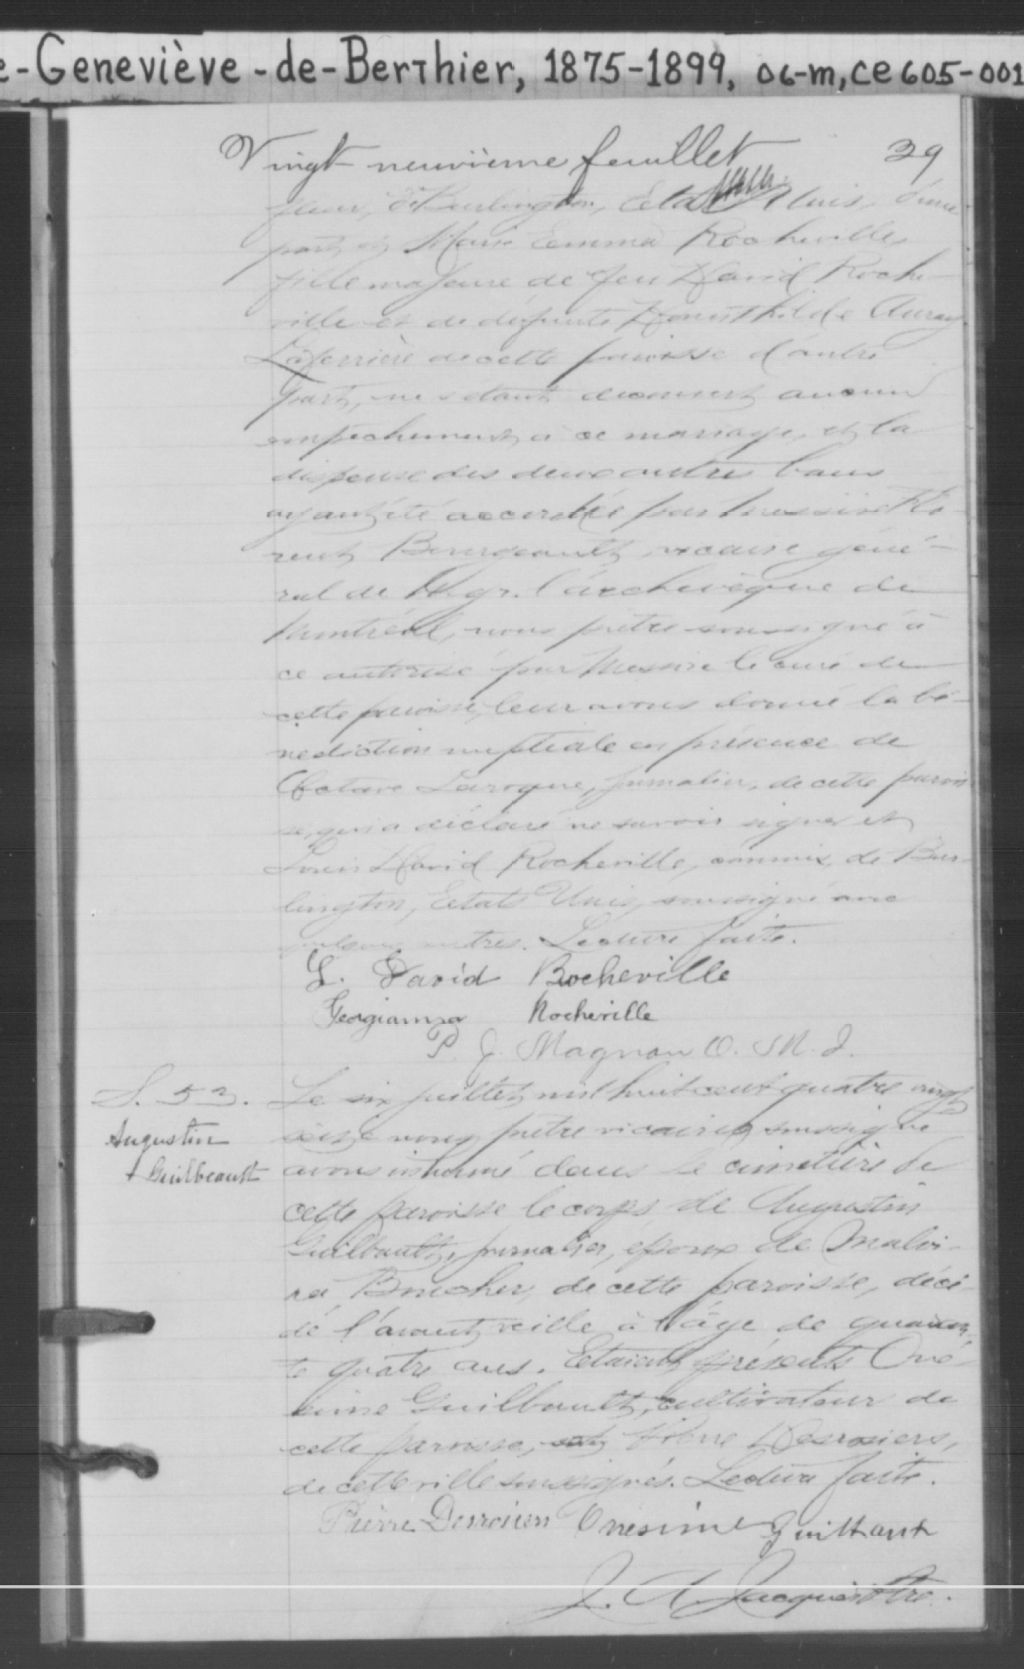 e-Geneviève-de-Berthier, 1875-1899, 06-m, ce605-001
Vingt neuvième feuillet 29
de Burlington, Etats Unis, d'une
part, et Marie Emma Rocheville
fille majeure de feu David Roche
ville et de défunte Auray
Laferrière de cette paroisse d'autre
part, ne s'étant découvert aucun
empêchement à ce mariage, et la
dispense des deux autres bans
ayant été accordée par Messire Flo-
rent Bourgeault, vicaire géné-
ral de Mgr. l'archevêque de
Montréal, nous prêtre soussigné à
ce autorisé par Messire le curé de
cette paroisse, leur avons donné la bé-
nédiction nuptiale en présence de
Octave Laroque, journalier, de cette parois
se, qui a déclaré ne savoir signer et
Louis David Rocheville, commis, de Bur-
lington, Etats Unis, soussigné avec
quelques autres. Lecture faite.
L. David Rocheville
Georgianna Rocheville
P. J. Magnan O. M. I.
S. 53. Le six juillet mil huit cent quatre vingt
Augustin
Guilbeault
seize nous prêtre vicaire soussigné
avons inhumé dans le cimetière de
cette paroisse le corps de Augustin
Guilbault, journalier, époux de Malvi-
na Boucher, de cette paroisse, décé-
dé l'avant veille à l'âge de quaran-
te quatre ans. Etaient présents Oné-
sime Guilbault, cultivateur de
cette paroisse, et Pierre Desrosiers,
de cette ville soussignés. Lecture faite.
Pierre Desrosiers Onésime Guilbault
J. A. Jacques Ptre.